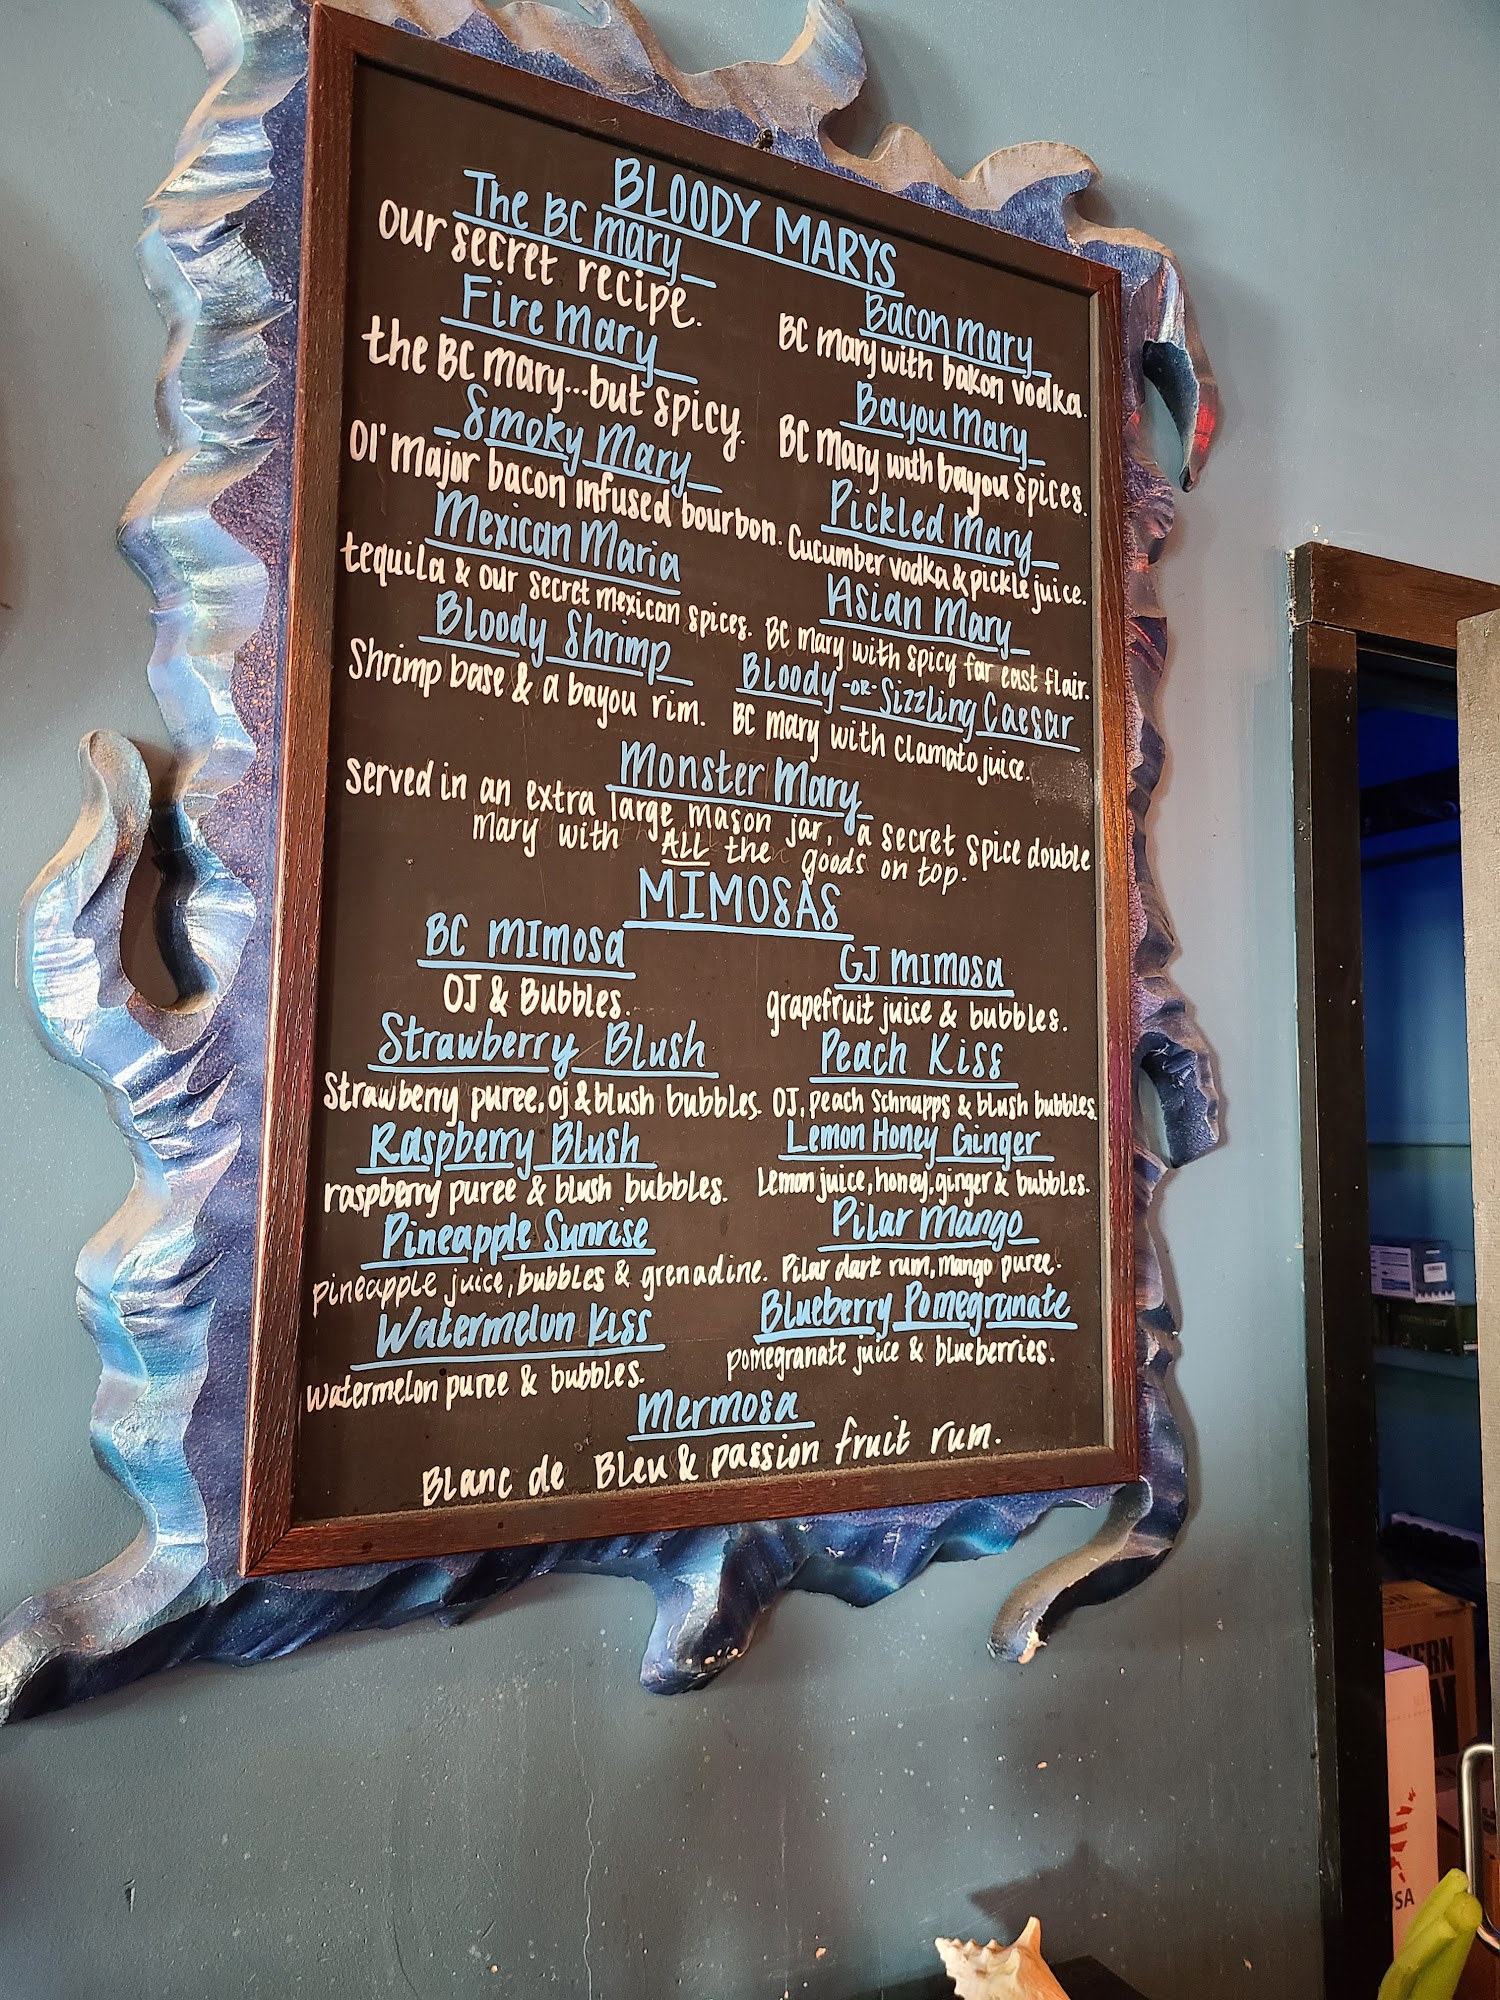 BLOODY MARYS
The BC Mary
our secret recipe.
Fire Mary
the BC mary...but spicy.
Smoky Mary
Ol' Major bacon infused bourbon.
Mexican Maria
tequila & our secret mexican spices.
Bloody Shrimp
Shrimp base & a bayou rim.
Bacon Mary
BC Mary with bakon vodka.
Bayou Mary
BC Mary with bayou spices.
Pickled Mary
Cucumber vodka & pickle juice.
Asian Mary
BC Mary with spicy far east flair.
Bloody -OR- Sizzling Caesar
BC Mary with clamato juice.
Monster Mary
Served in an extra large mason jar, a secret spice double
Mary with ALL the goods on top.
MIMOSAS
BC MImosa
OJ & Bubbles.
Strawberry Blush
Strawberry puree, oj & blush bubbles.
Raspberry Blush
raspberry puree & blush bubbles.
Pineapple Sunrise
pineapple juice, bubbles & grenadine.
Watermelon Kiss
Watermelon puree & bubbles.
GJ MImosa
grapefruit juice & bubbles.
Peach Kiss
OJ, peach Schnapps & blush bubbles.
Lemon Honey Ginger
Lemon juice, honey, ginger & bubbles.
Pilar Mango
Pilar dark rum, mango puree.
Blueberry Pomegranate
pomegranate juice & blueberries.
Mermosa
Blanc de Bleu & passion fruit rum.